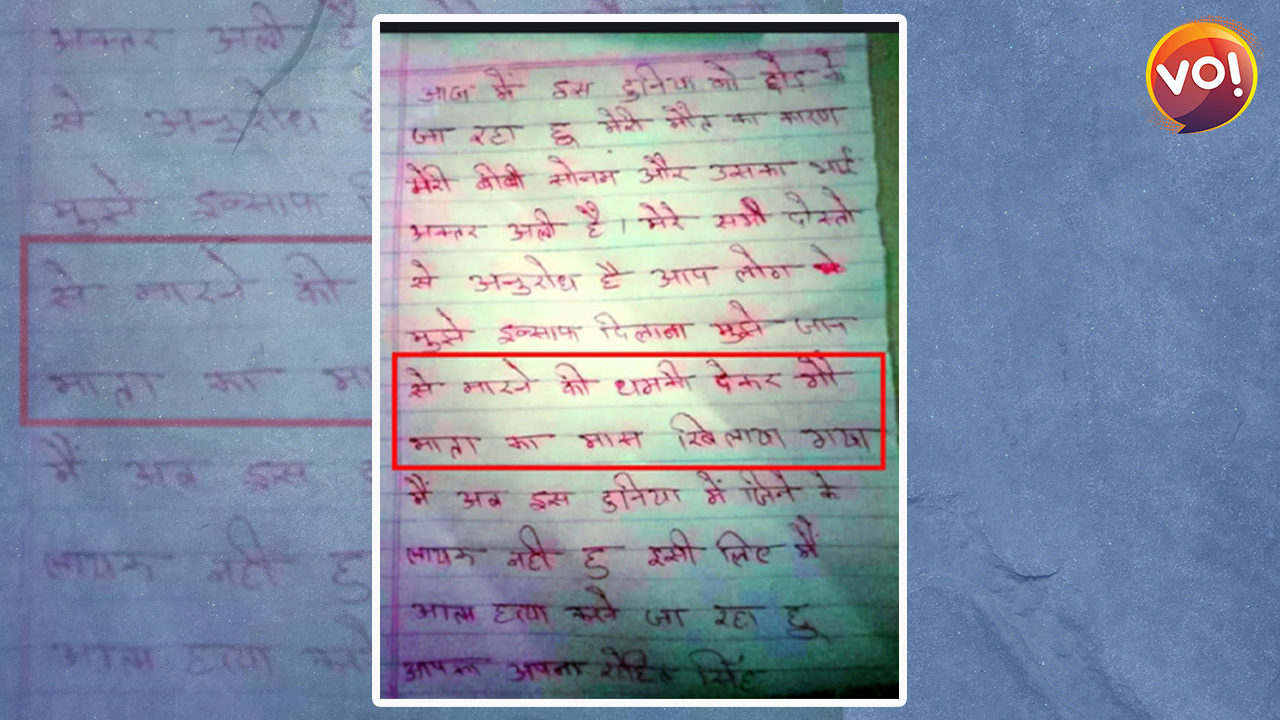 आज में इस दुनिया को छोड़ के
जा रहा हू मेरी मौत का कारण
मेरी बीबी सोनम और उसका भाई
अक्तर अली है। मेरे सभी दोस्तो
से अनुरोध है आप लोग
मुझे इन्साफ दिलाना मुझे जान
से मारने की धमकी देकर गौ
माता का मास खिलाया गया
मैं अब इस दुनिया में जिने के
लायक नही हु इसी लिए मैं
आत्म हत्या करने जा रहा हु
आपका अपना रोहित सिंह
VO!
अक्तर अली है
से अनुरोध है
मुझे इन्साफ
से मारने की
माता का मा
मैं अब इस
लायक नही हु
आत्म हत्या कर